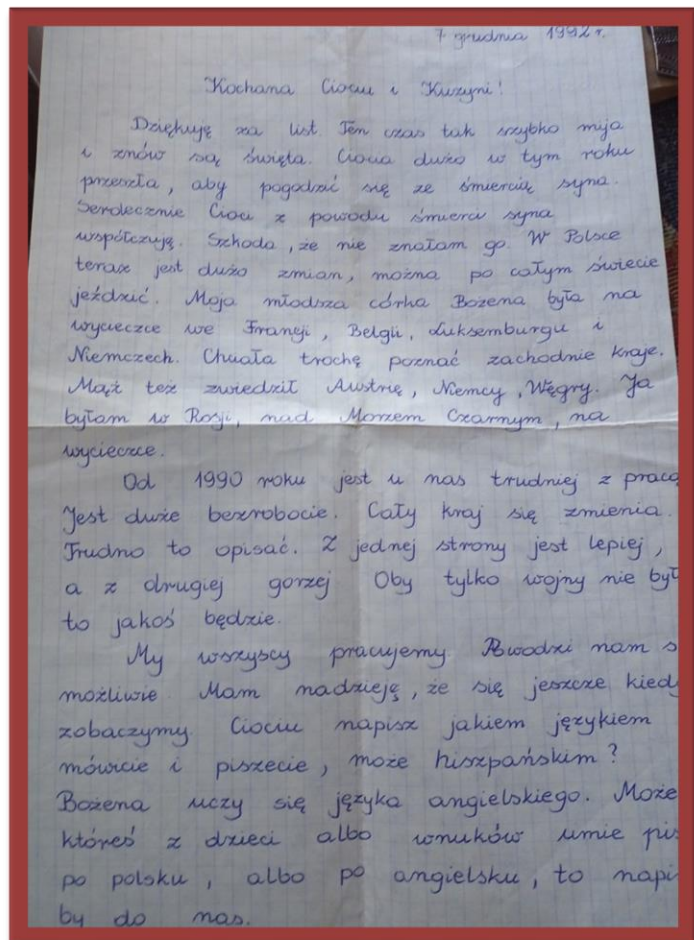 7 grudnia 1992 r.
Kochana Ciociu i Kuzyni!
Dziękuję za list Ten czas tak szybko mija
i znów są święta. Ciocia dużo w tym roku
przeszła, aby pogodzić się ze śmiercią syna.
Serdecznie Cioci z powodu śmierci syna
współczuję. Szkoda, że nie znałam go. W Polsce
teraz jest dużo zmian, można po całym świecie
jeździć. Moja młodsza córka Bożena była na
wycieczce we Francji, Belgii, Luksemburgu i
Niemczech. Chciała trochę poznać zachodnie kraje.
Mąż też zwiedził Austrię, Niemcy, Węgry. Ja
byłam w Rosji, nad Morzem Czarnym, na
wycieczce.
Od 1990 roku jest u nas trudniej z pracą
Jest duże bezrobocie. Cały kraj się zmienia.
Trudno to opisać. Z jednej strony jest lepiej,
a z drugiej gorzej Oby tylko wojny nie był
to jakoś będzie.
My wszyscy pracujemy. Powodzi nam s
możliwie. Mam nadzieję, że się jeszcze kied
zobaczymy. Ciociu napisz jakiem językiem
mówicie i piszecie, może hiszpańskim?
Bożena uczy się języka angielskiego. Może
któreś z dzieci albo wnuków umie pis
po polsku, albo po angielsku, to napi
by do nas.